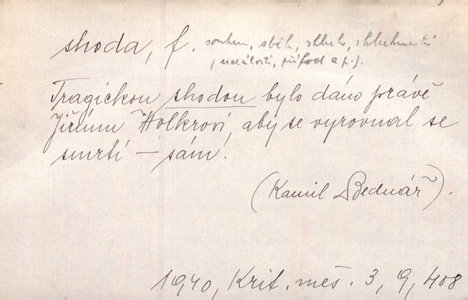 shoda, f. souhrn, sběh, shluk,
událostí, případ a p.).
Tragickou shodou bylo dáno právě
Jiřímu Wolkrovi, aby se vyrovnal se
smrtí — sám.
(Kamil Bednář).
1940, Krit. měs. 3, 9, 408